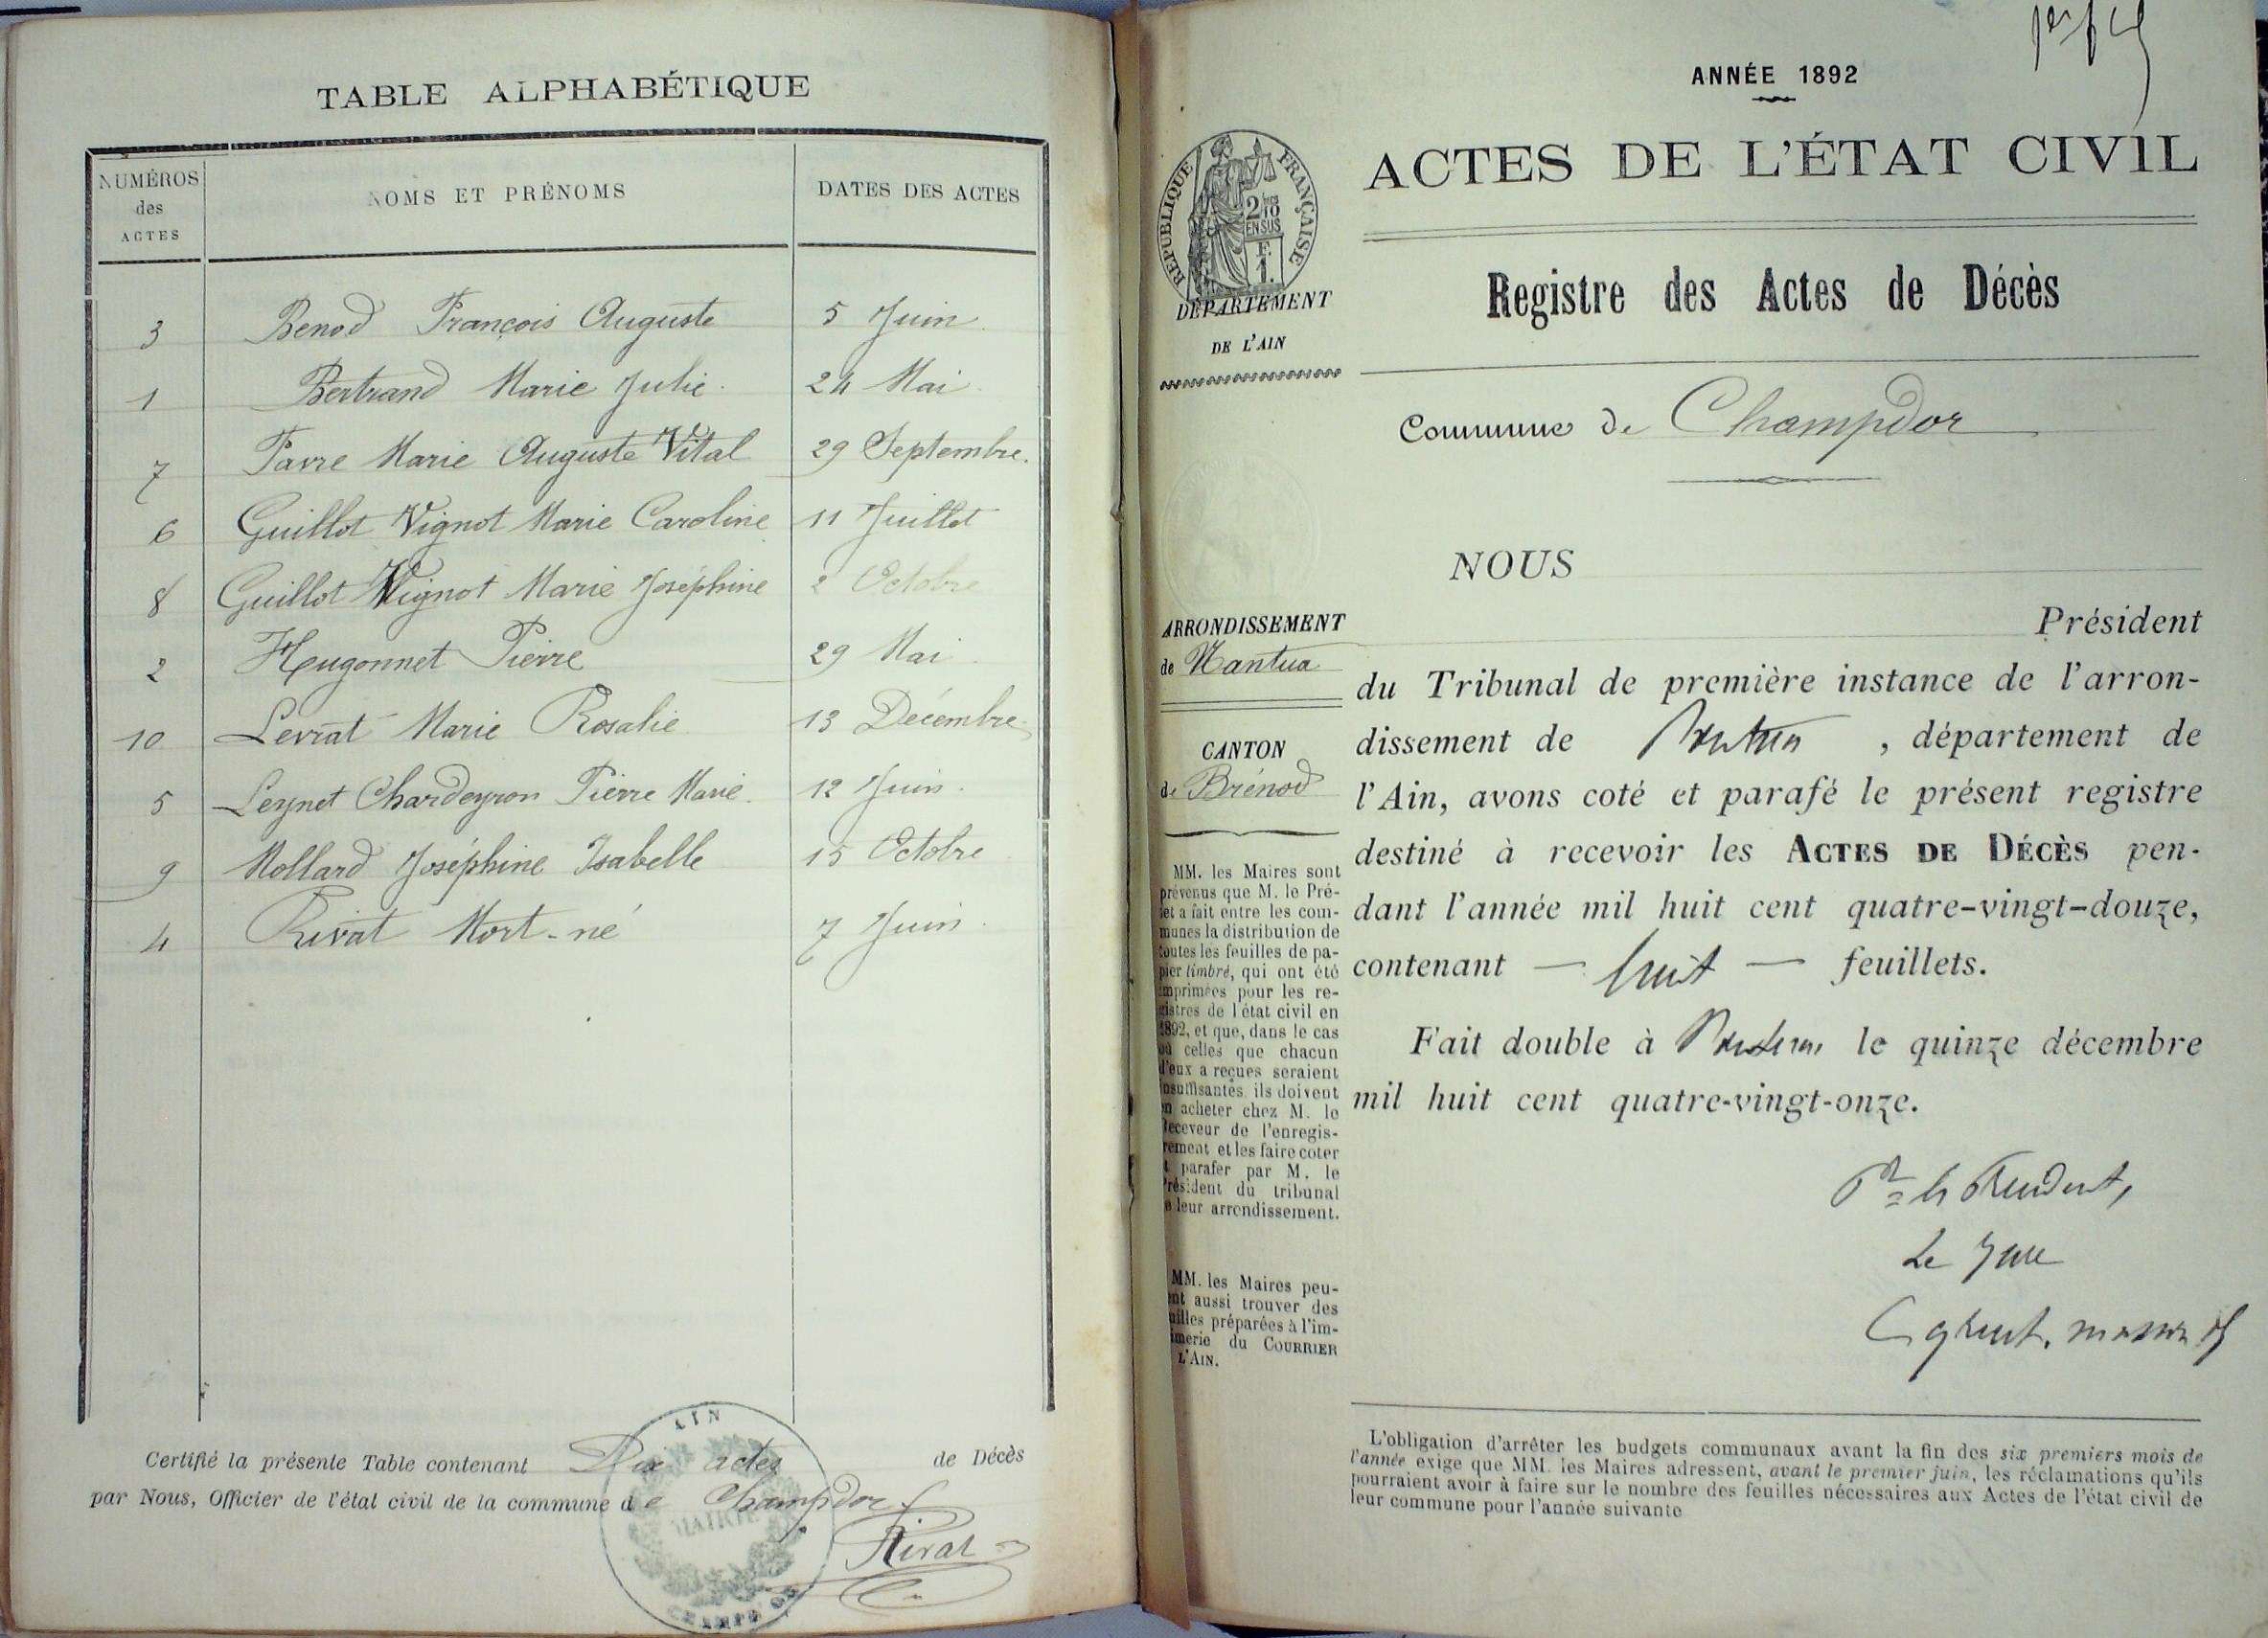 TABLE ALPHABÉTIQUE
NUMÉROS des ACTES
NOMS ET PRÉNOMS
DATES DES ACTES
3 Benod François Auguste 5 Juin
1 Bertrand Marie Julie 24 Mai
7 Favre Marie Auguste Vital 29 Septembre
6 Guillot Vignot Marie Caroline 11 Juillet
8 Guillot Vignot Marie Joséphine 2 Octobre
2 Hugonnet Pierre 29 Mai
10 Levrat Marie Rosalie 13 Décembre
5 Leynet Chardeyron Pierre Marie 12 Juin
9 Mollard Joséphine Isabelle 15 Octobre
4 Rivat Mort-né 7 Juin
Certifié la présente Table contenant Dix actes de Décès
par Nous, Officier de l'état civil de la commune de Champdor
Rivat
AIN
MAIRIE
CHAMPDOR
ANNÉE 1892
ACTES DE L'ÉTAT CIVIL
RÉPUBLIQUE FRANÇAISE
2/10
EN SUS
F.
1.
DÉPARTEMENT
DE L'AIN
Registre des Actes de Décès
Commune de Champdor
NOUS
Président
du Tribunal de première instance de l'arron-
dissement de Nantua, département de
l'Ain, avons coté et parafé le présent registre
destiné à recevoir les ACTES DE DÉCÈS pen-
dant l'année mil huit cent quatre-vingt-douze,
contenant — huit — feuillets.
Fait double à Nantua le quinze décembre
mil huit cent quatre-vingt-onze.
Pr le Président,
Le Juge
ARRONDISSEMENT
de Nantua
CANTON
de Brénod
MM. les Maires sont
prévenus que M. le Pré-
fet a fait entre les com-
munes la distribution de
toutes les feuilles de pa-
pier timbré, qui ont été
imprimées pour les re-
gistres de l'état civil en
1892, et que, dans le cas
où celles que chacun
d'eux a reçues seraient
insuffisantes, ils doivent
en acheter chez M. le
Receveur de l'enregis-
rement et les faire coter
et parafer par M. le
Président du tribunal
de leur arrondissement.
MM. les Maires peu-
ent aussi trouver des
uilles préparées à l'im-
imerie du COURRIER
L'AIN.
L'obligation d'arrêter les budgets communaux avant la fin des six premiers mois de
l'année exige que MM. les Maires adressent, avant le premier juin, les réclamations qu'ils
pourraient avoir à faire sur le nombre des feuilles nécessaires aux Actes de l'état civil de
leur commune pour l'année suivante